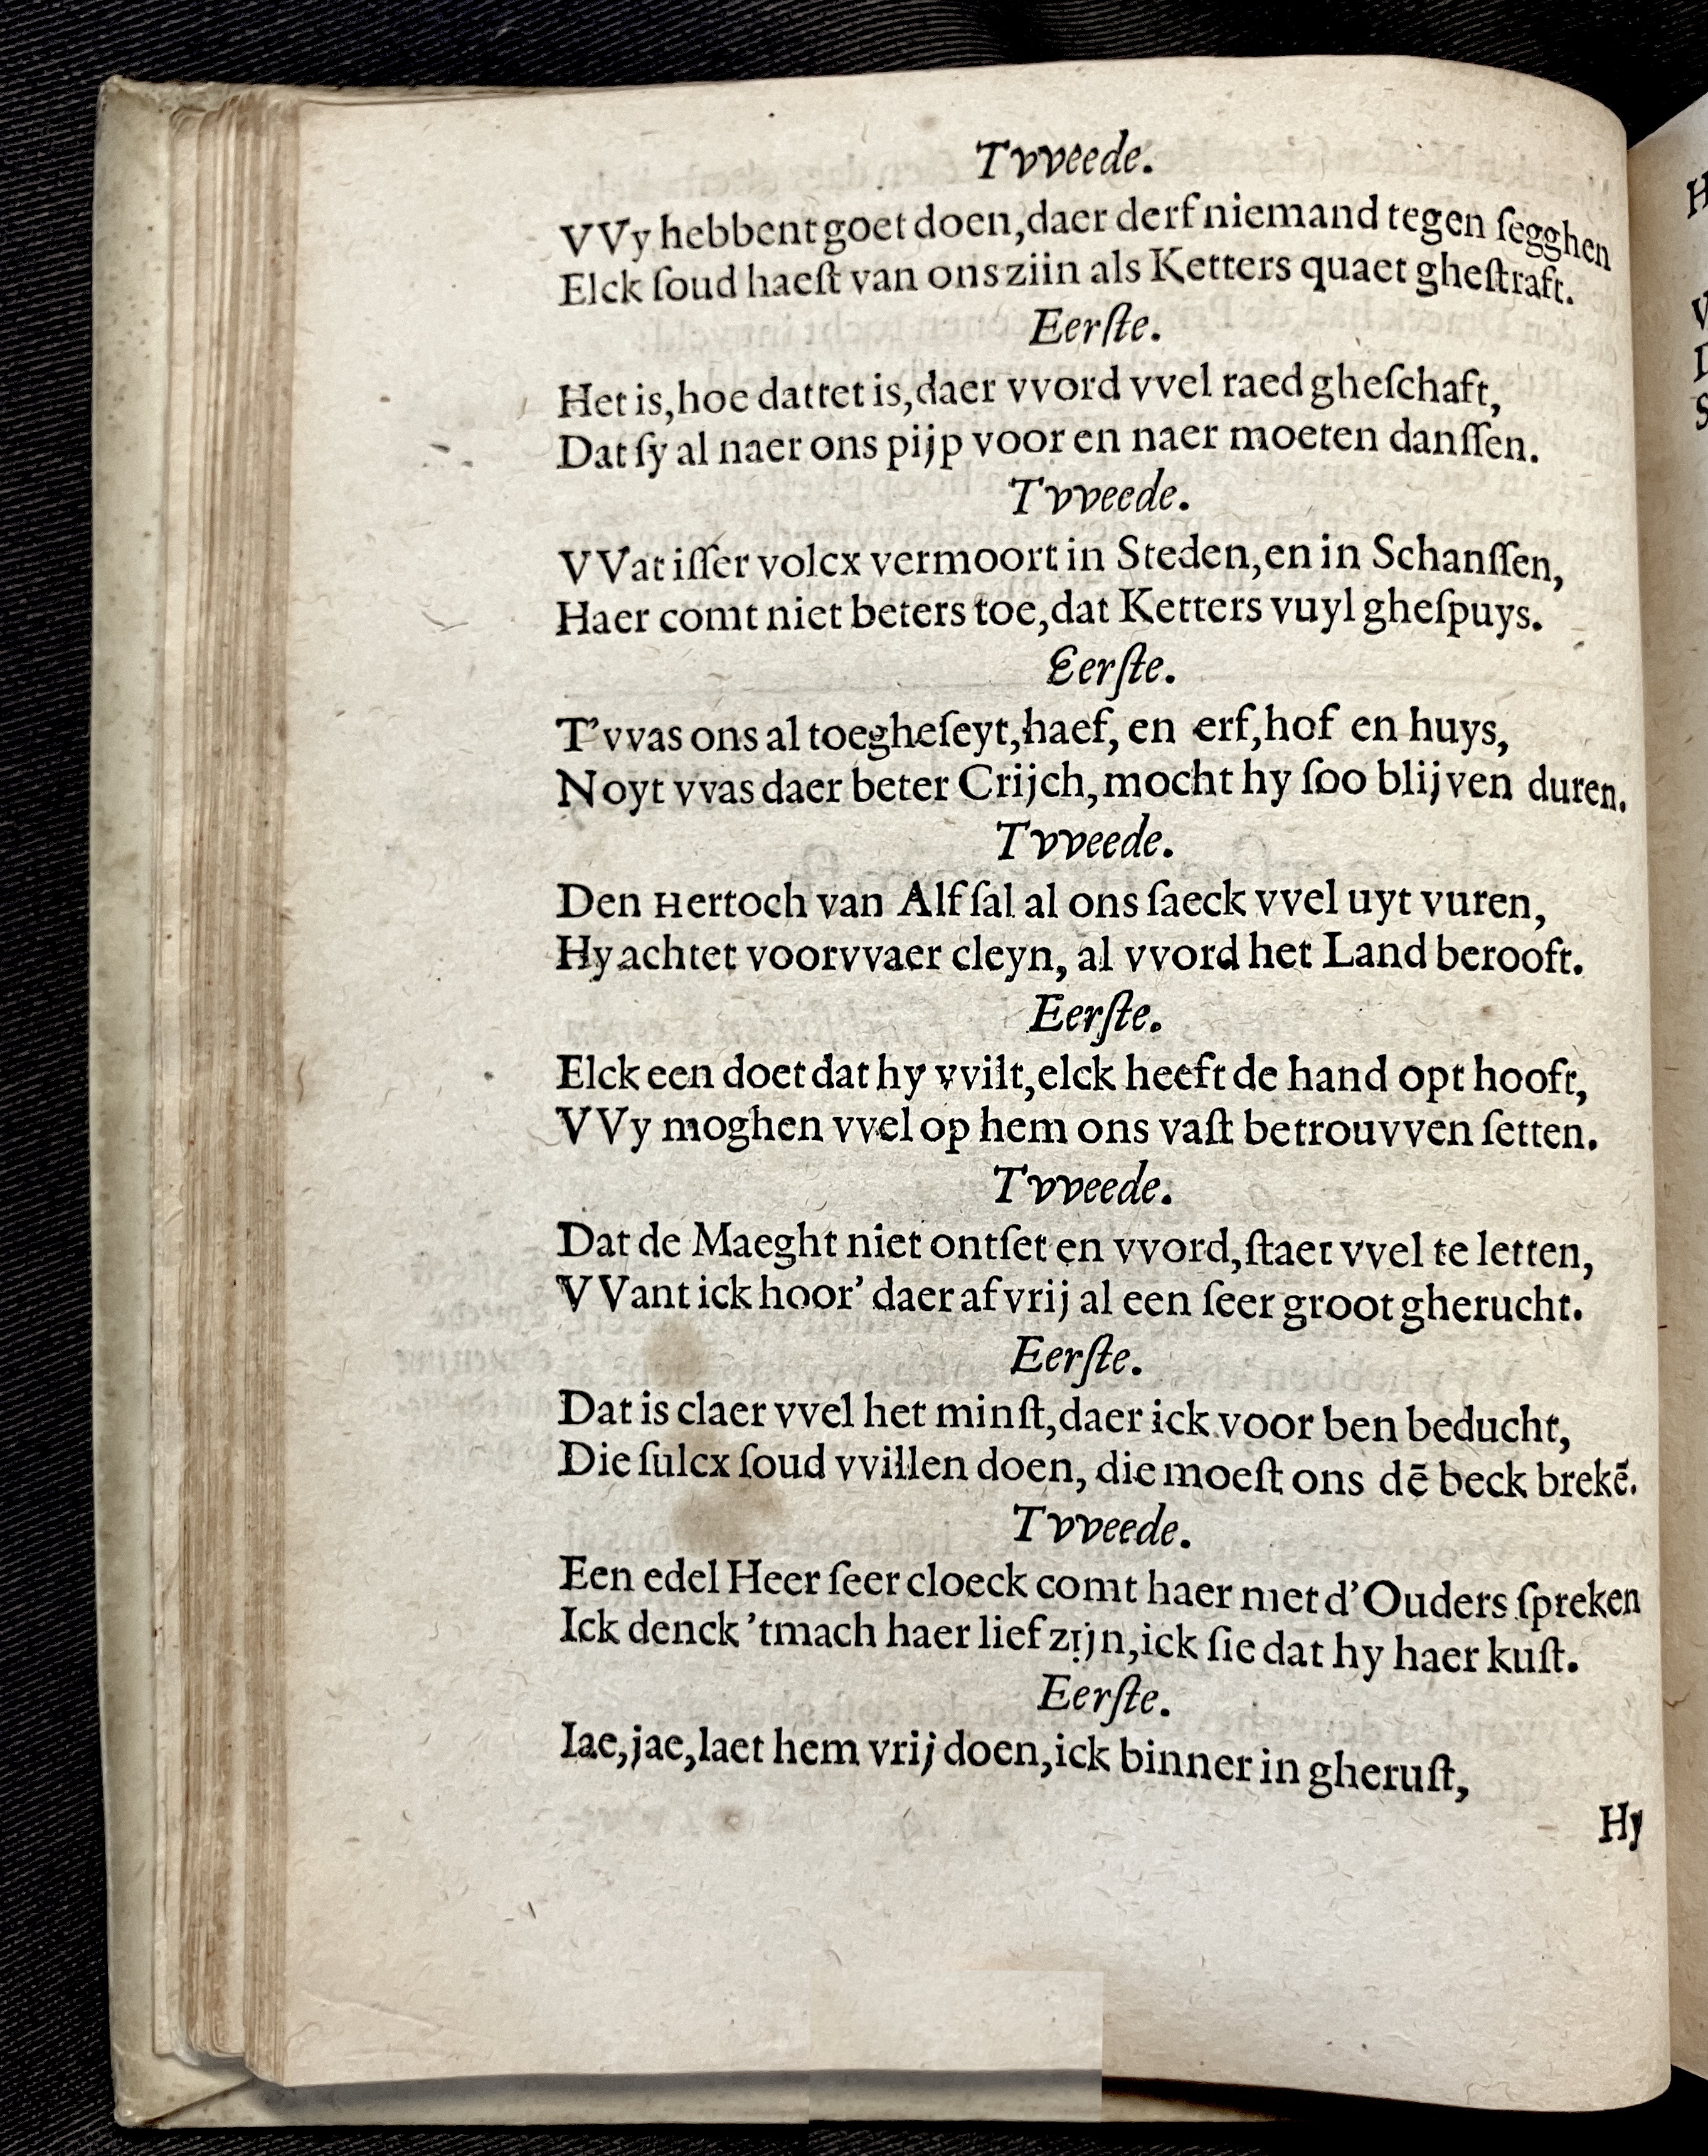 Tvveede.
VVy hebbent goet doen, daer derf niemand tegen ſegghen
Elck ſoud haeſt van ons ziin als Ketters quaet gheſtraft.
Eerſte.
Het is, hoe dattet is, daer vvord vvel raed gheſchaft,
Dat ſy al naer ons pijp voor en naer moeten danſſen.
Tvveede.
VVat iſſer volcx vermoort in Steden, en in Schanſſen,
Haer comt niet beters toe, dat Ketters vuyl gheſpuys.
Eerſte.
T'vvas ons al toegheſeyt, haef, en erf, hof en huys,
Noyt vvas daer beter Crijch, mocht hy ſoo blijven duren.
Tvveede.
Den Hertoch van Alf ſal al ons ſaeck vvel uyt vuren,
Hy achtet voorvvaer cleyn, al vvord het Land berooft.
Eerſte.
Elck een doet dat hy vvilt, elck heeft de hand opt hooft,
VVy moghen vvel op hem ons vaſt betrouvven ſetten.
Tvveede.
Dat de Maeght niet ontſet en vvord, ſtaet vvel te letten,
VVant ick hoor' daer af vrij al een ſeer groot gherucht.
Eerſte.
Dat is claer vvel het minſt, daer ick voor ben beducht,
Die ſulcx ſoud vvillen doen, die moeſt ons dē beck brekē.
Tvveede.
Een edel Heer ſeer cloeck comt haer met d'Ouders ſpreken
Ick denck 'tmach haer lief zijn, ick ſie dat hy haer kuſt.
Eerſte.
Iae, jae, laet hem vrij doen, ick binner in gheruſt,
Hy